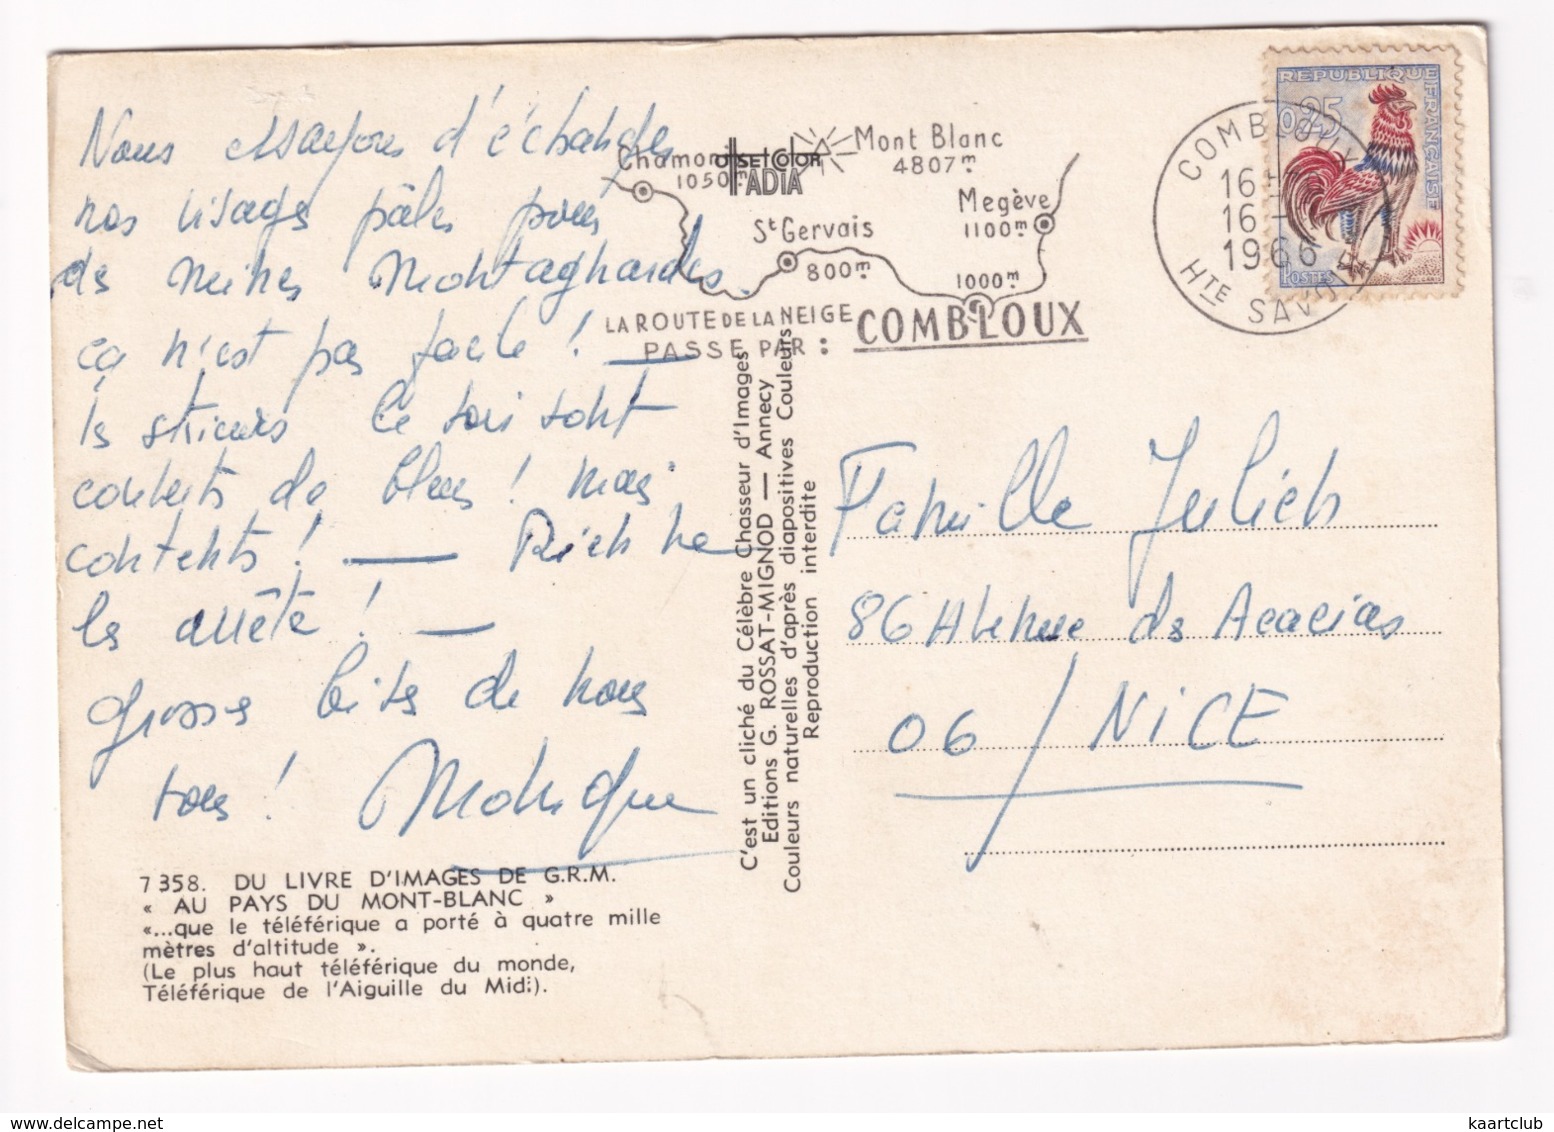 Nous essayons d'échanger
nos visages pâles pour
des mines montagnardes.
ça n'est pas facile !
les skieurs le soir sont
couverts de bleus ! mais
contents ! — Rien ne
les arrête ! —
grosses bises de nous
tous ! Monique
7358. DU LIVRE D'IMAGES DE G.R.M.
« AU PAYS DU MONT-BLANC »
«...que le téléférique a porté à quatre mille
mètres d'altitude ».
(Le plus haut téléférique du monde,
Téléférique de l'Aiguille du Midi).
C'est un cliché du Célèbre Chasseur d'Images
Editions G. ROSSAT-MIGNOD — Annecy
Couleurs naturelles d'après diapositives Couleurs
Reproduction interdite
OFFSET COLOR
IADIA
Chamonix
1050m
Mont Blanc
4807m
St Gervais
800m
Megève
1100m
1000m
LA ROUTE DE LA NEIGE
PASSE PAR : COMBLOUX
COMBLOUX
16 H
16 -
1966
HTE SAVOIE
REPUBLIQUE FRANÇAISE
0,25
POSTES
Famille Julien
86 Avenue des Acacias
06 / NICE
kaartclub